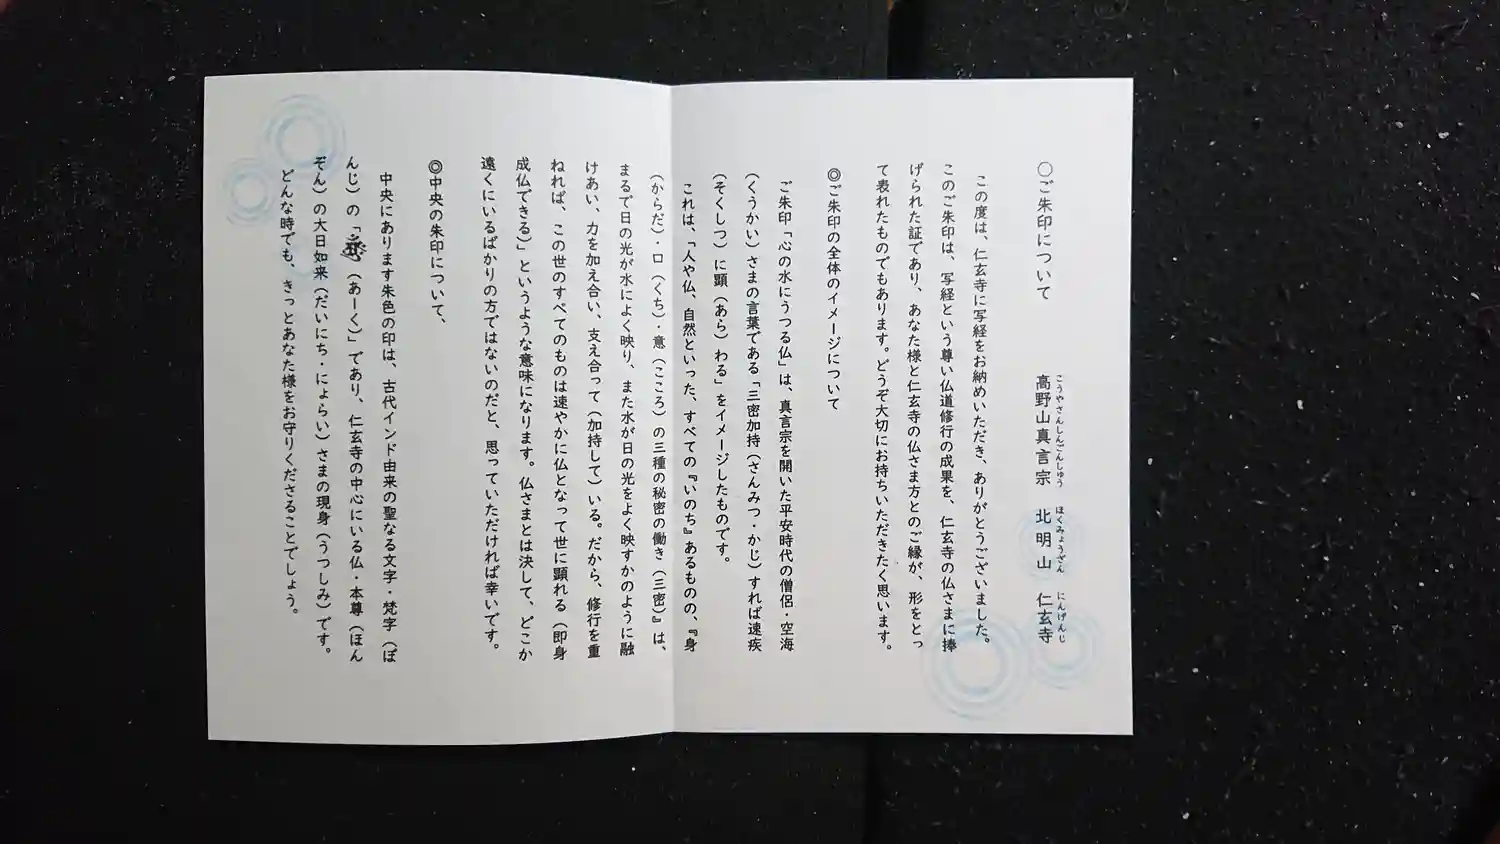 〇ご朱印について
高野山真言宗 北明山 仁玄寺
こうやさんしんごんしゅう ほくみょうざん にんげんじ
この度は、仁玄寺に写経をお納めいただき、ありがとうございました。
このご朱印は、写経という尊い仏道修行の成果を、仁玄寺の仏さまに捧
げられた証であり、あなた様と仁玄寺の仏さま方とのご縁が、形をとっ
て表れたものでもあります。どうぞ大切にお持ちいただきたく思います。
◎ご朱印の全体のイメージについて
ご朱印「心の水にうつる仏」は、真言宗を開いた平安時代の僧侶・空海
(くうかい)さまの言葉である「三密加持(さんみつ・かじ)すれば速疾
(そくしつ)に顕(あら)わる」をイメージしたものです。
これは、「人や仏、自然といった、すべての『いのち』あるものの、『身
(からだ)・口(くち)・意(こころ)の三種の秘密の働き(三密)』は、
まるで日の光が水によく映り、また水が日の光をよく映すかのように融
けあい、力を加え合い、支え合って(加持して)いる。だから、修行を重
ねれば、この世のすべてのものは速やかに仏となって世に顕れる(即身
成仏できる)」というような意味になります。仏さまとは決して、どこか
遠くにいるばかりの方ではないのだと、思っていただければ幸いです。
◎中央の朱印について、
中央にあります朱色の印は、古代インド由来の聖なる文字・梵字(ぼ
んじ)の「(あーく)」であり、仁玄寺の中心にいる仏・本尊(ほん
ぞん)の大日如来(だいにち・にょらい)さまの現身(うつしみ)です。
どんな時でも、きっとあなた様をお守りくださることでしょう。